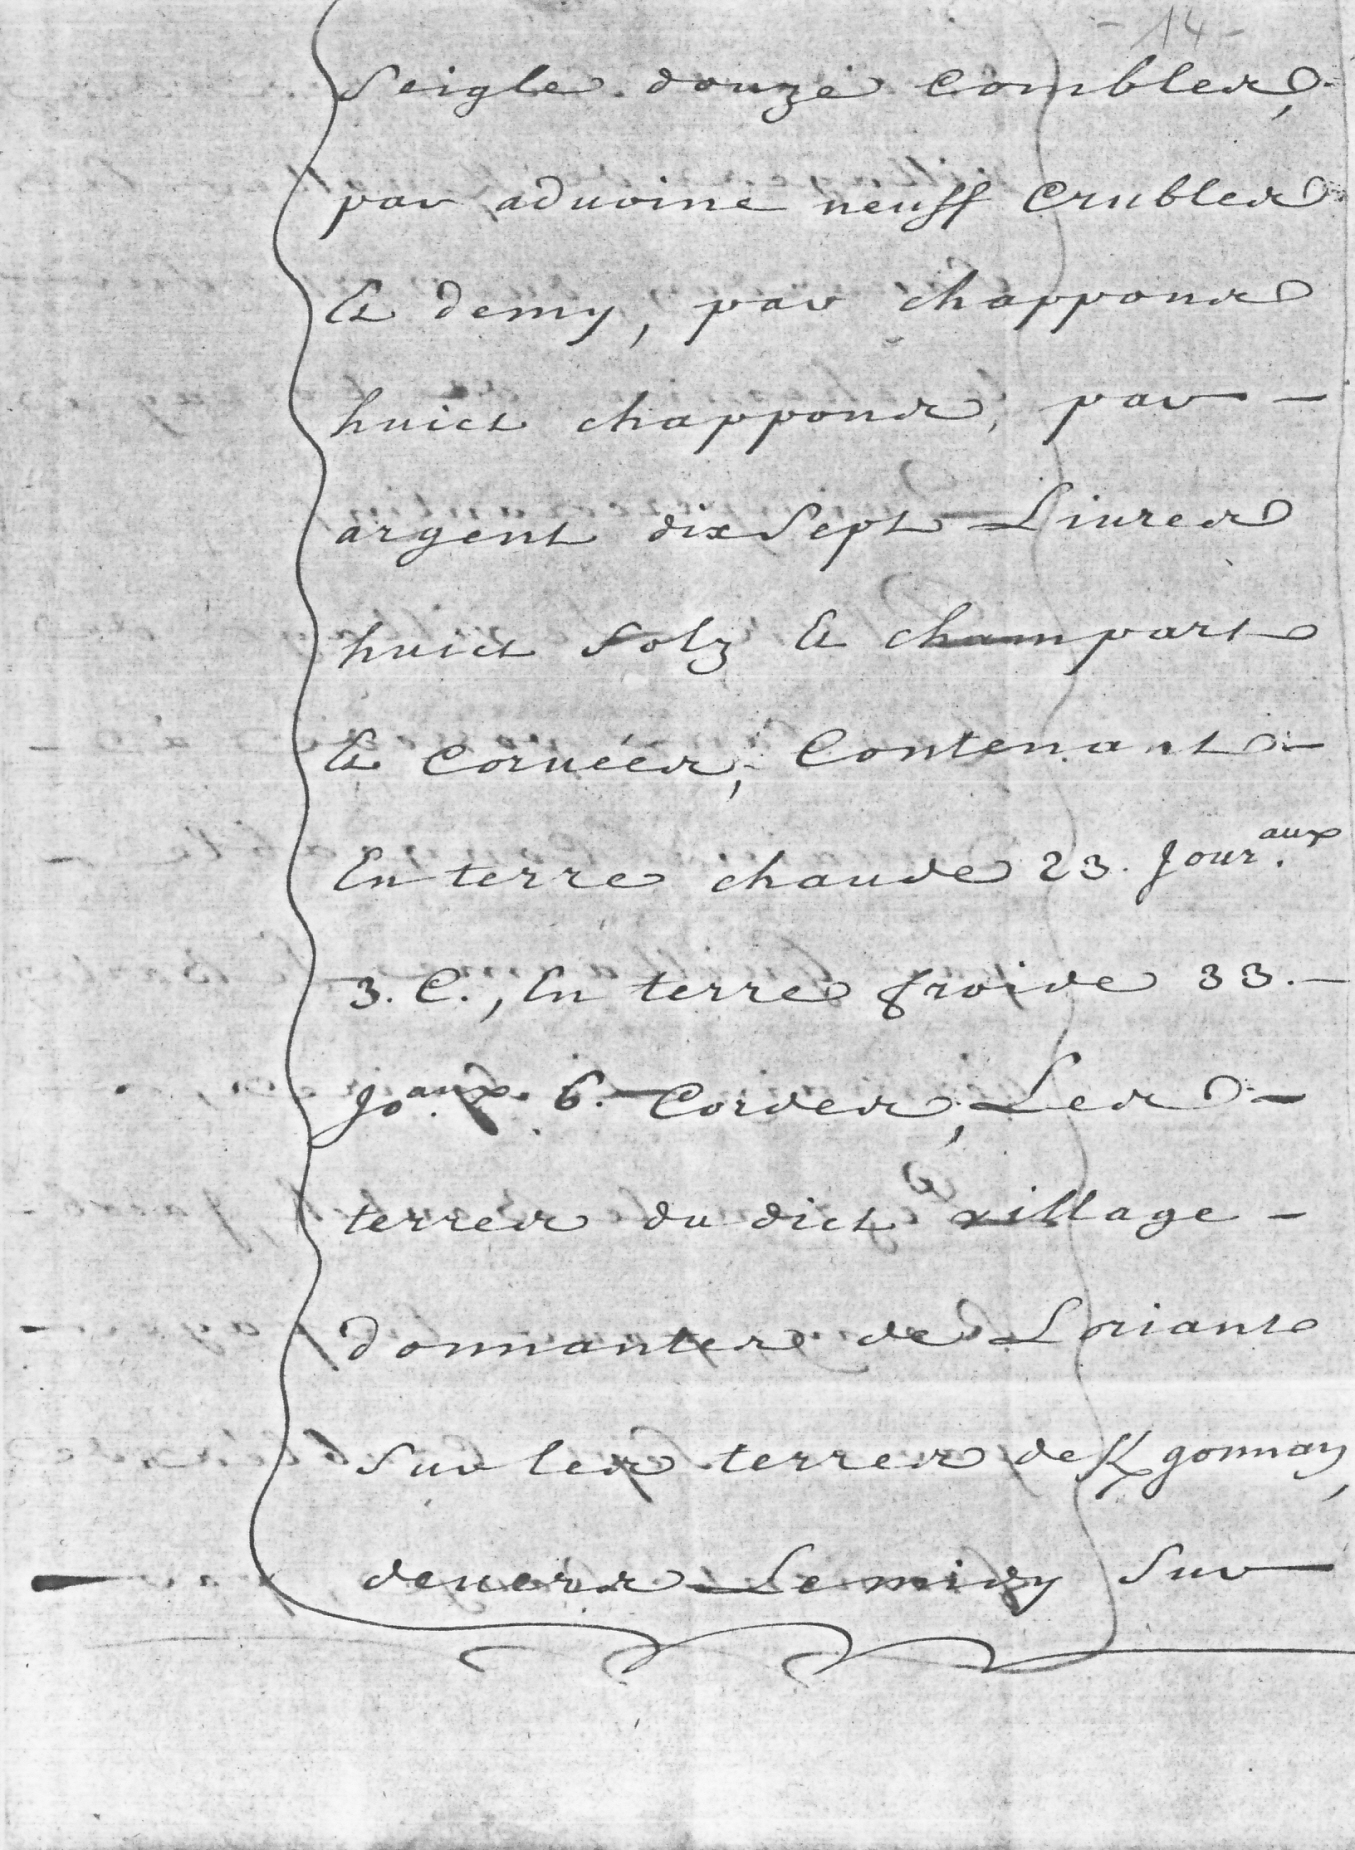 - 14 -
Seigle douze Combles,
par aduoine neuff Crubles
Et demy, par chappons
huict chappons, par -
argent dix Sept Liures
huict Solz Et champart
Et Coruées, Contenant -
En terre chaude 23. Jour.aux
3. C., En terre froide 33. -
Jo.aux. 6. Cordes, Les -
terres du dict village -
donnantes de Loriant
Sur les terres de K/gonnan,
deuers Le midy Sur